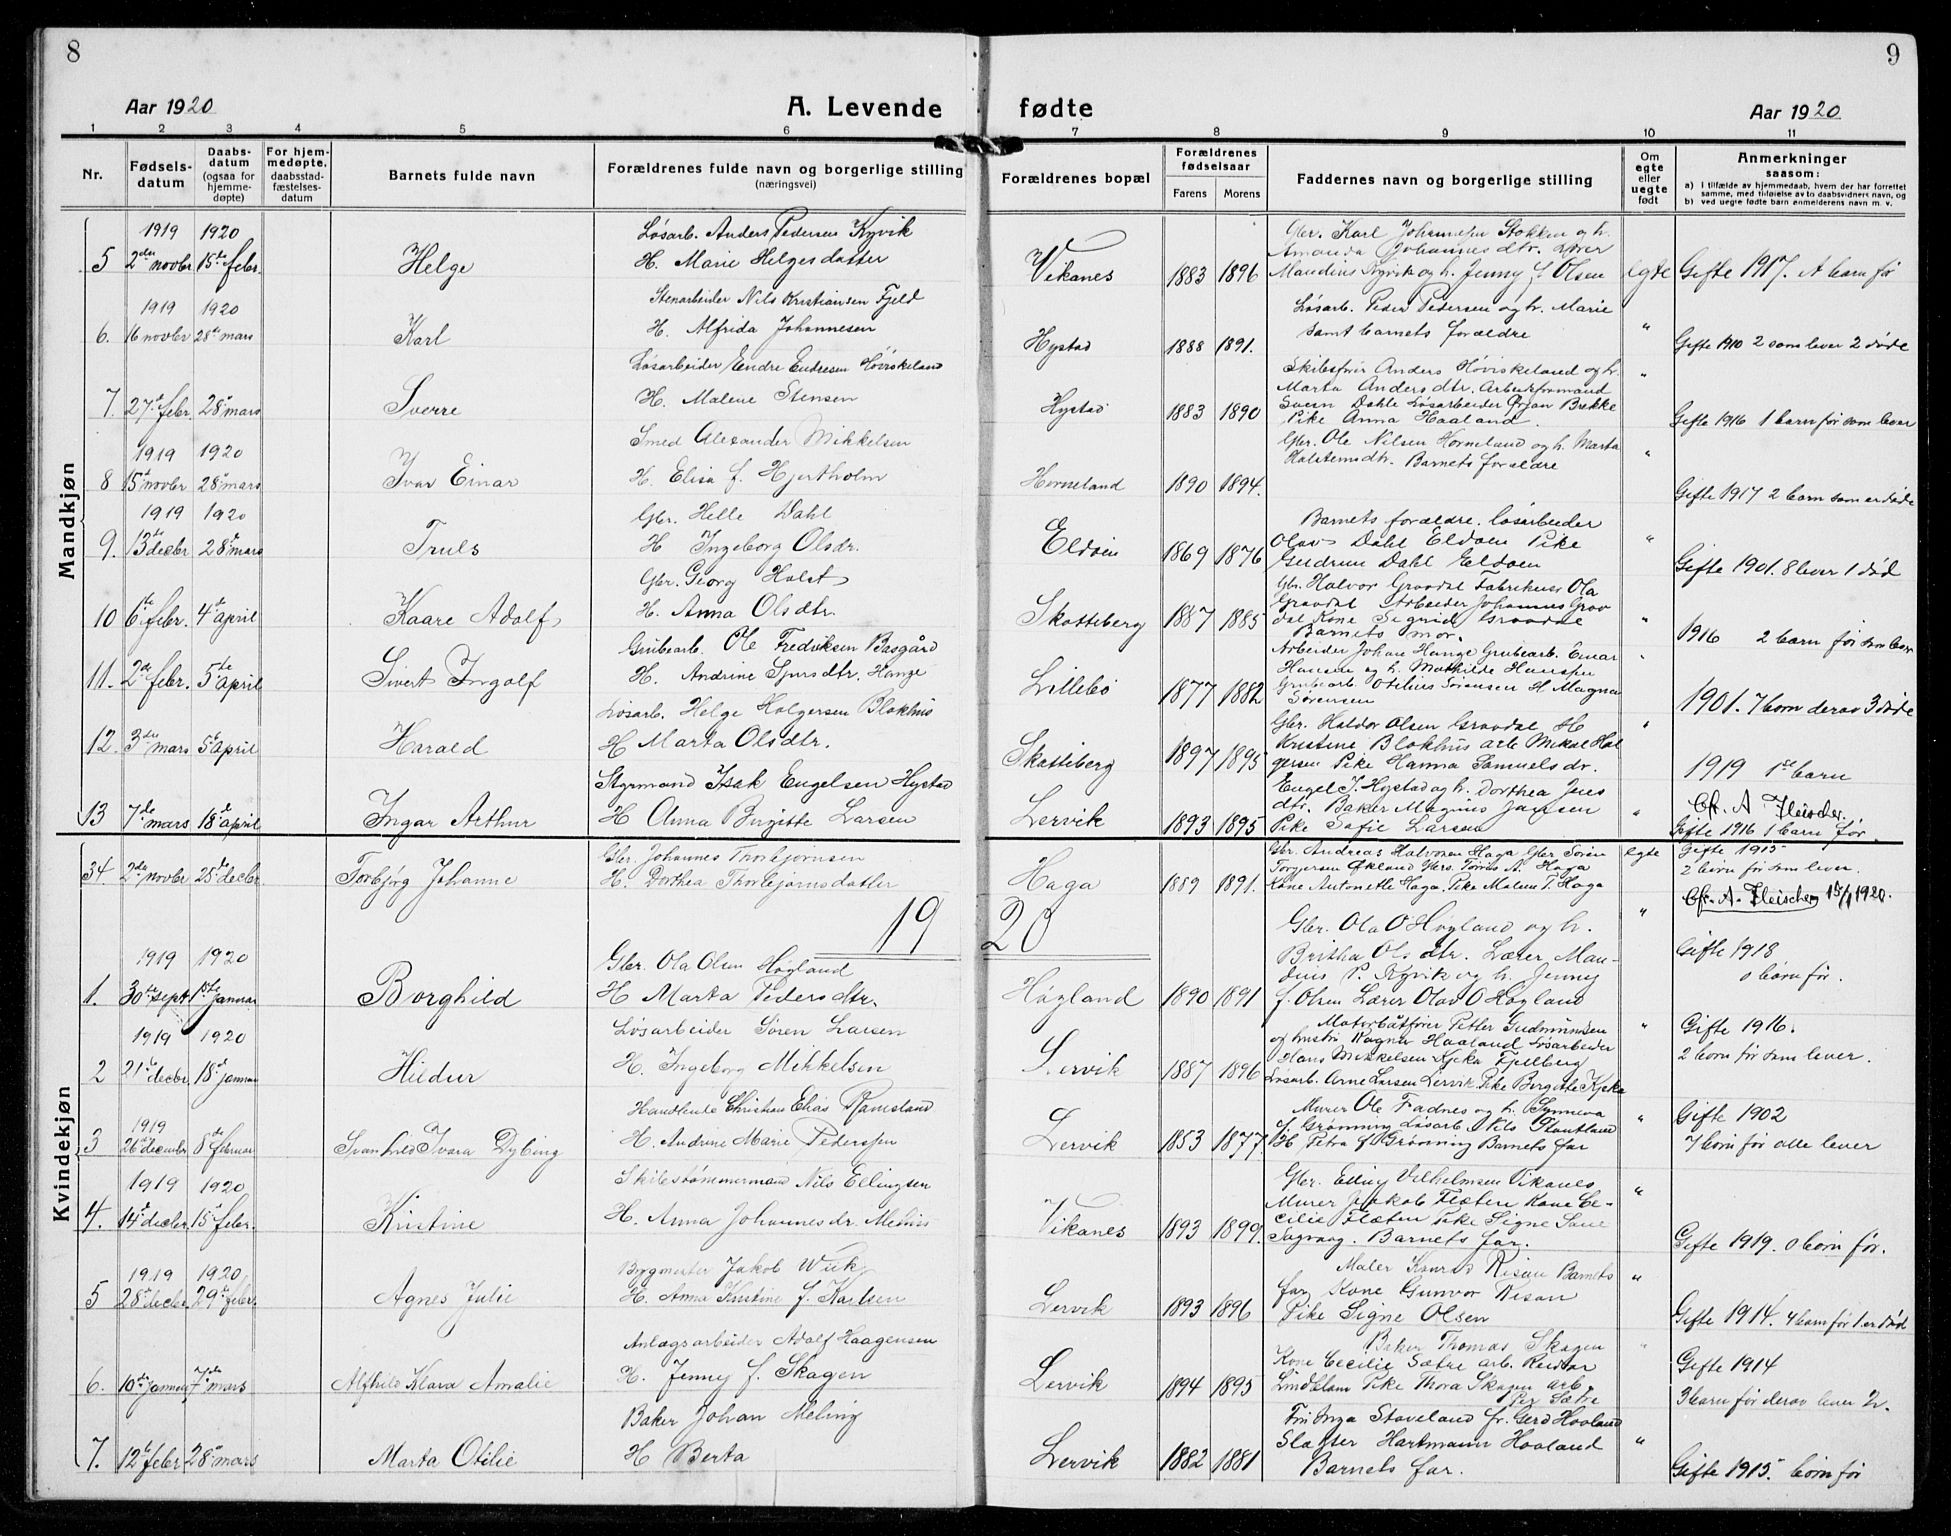 8
9
Aar 1920
A. Levende fødte
Aar 1920
1 2 3 4 5 6 7 8 9 10 11
Nr.
Fødsels-
datum
Daabs-
datum
(ogsaa for
hjemme-
døpte)
For hjem-
medøpte,
daabsstad-
fæstelses-
datum
Barnets fulde navn
Forældrenes fulde navn og borgerlige stilling
(næringsvei)
Forældrenes bopæl
Forældrenes
fødselsaar
Farens Morens
Faddernes navn og borgerlige stilling
Om
egte
eller
uegte
født
Anmerkninger
saasom:
a) I tilfælde av hjemmedaab, hvem der har forrettet
samme, med tilføielse av to daabsvidners navn, og
b) ved uegte fødte barn anmelderens navn m. v.
Mandkjøn
1919 1920
5 2den novbr 15de febr. Helge
Løsarb. Anders Pedersen Kyvik
H. Marie Helgesdatter
Vikanes 1883 1896
Gbr. Karl Johannesen Stokken og h.
Amanda Johannesdtr. Lærer
Maudius Kyvik og h. Jenny f. Olsen
egte Gifte 1917. A barn før
1919 1920
6. 16 novbr 28de mars Karl
Stenarbeider Nils Kristiansen Fjeld
H. Alfrida Johannesen
Hystad 1888 1891.
Løsarb. Peder Pedersen og h. Marie
samt barnets forældre
" Gifte 1910 2 som lever 2 døde
7. 27de febr. 28de mars Sverre
Løsarbeider Endre Endresen Høviskeland
H. Malene Stensen
Hystad 1883 1890
Skibsfører Anders Høviskeland og h.
Marta Andersdtr. Arbeidsformand
Svein Dahle Løsarbeider Ørjan Brekke
Pike Anna Haaland.
" Gifte 1916 1 barn før som lever
1919 1920
8 15de novbr 28de mars Ivar Einar
Smed Alexander Mikkelsen
H. Elisa f. Hjertholm
Horneland 1890 1894.
Gbr. Ole Nilsen Horneland og h. Marta
Halstensdtr. Barnets forældre
" Gifte 1917 2 barn som er døde
1919 1920
9. 13de decbr 28de mars Truls
Gbr. Helle Dahl
H Ingeborg Olsdr.
Eldøen 1869 1876
Barnets forældre. løsarbeider
Olav Dahl Eldøen Pike
Gudrun Dahl Eldøen
" Gifte 1901. 8 lever 1 død
10 6te febr. 4de april Kaare Adolf
Gbr. Georg Holst
H. Anna Olsdtr.
Skatteberg 1887 1885
Gbr. Halvor Gravdal Fabrikeier Ola
Gravdal Arbeider Johannes Grav
dal Kone Sigrid Gravdal
Barnets mor.
" 1916 2 barn før som lever
11. 2den febr. 5te april Sivert Ingolf
Grubearb. Ole Fredriksen Basgård
H. Andrine Sjursdtr. Hange
Lillebø 1877 1882
Arbeider Johan Hange Grubearb. Einar
Hansen og h. Mathilde Hansen
Grubearb Otilius Sørensen H Magna
Sørensen
1901. 7 born derav 3 døde
12. 3die mars 5te april Harald
Løsarb. Helge Holgersen Blokhus
H Marta Olsdtr.
Skatteberg 1897 1895
Gbr. Haldor Olsen Gravdal H
Kristine Blokhus arb Mikal Hol
gersen Pike Hanna Samuelsdr.
" 1919 1ste barn
13 7de mars 18de april Ingar Arthur
Styrmand Isak Engelsen Hystad
H Anna Birgitte Larsen
Lervik 1893 1895
Engel J. Hystad og h. Dorthea Jens
dtr. Baker Magnus Jansen
Pike Sofie Larsen
" Cfr. A Fleischer.
Gifte 1916 1 barn før
Kvindekjøn
34. 2den novbr 25de decbr Torbjørg Johanne
Gbr. Johannes Thorbjørnsen
H. Dorthea Thorbjørnsdatter
Haga 1889 1891.
Gbr. Andreas Halvorsen Haga Gbr. Søren
Torgersen Økland Gbrs. Tørris A. Haga
Kone Antonette Haga. Pike Malene T. Haga
egte Gifte 1915
2 barn før som lever.
Cfr. A. Fleischer 15/1 1920.
1920
1919 1920
1. 30te sept 1ste januar Borghild
Gbr. Ola Olsen Høgland
H Marta Pedersdtr.
Høgland 1890 1891
Gbr. Ola O Høgland og h.
Britha Olsdtr. Lærer Mau-
dius P. Kyvik og h. Jenny
f. Olsen Lærer Olav O Høgland
" Gifte 1918
0 børn før.
1919 1920
2 21de decbr 18de januar Hildur
Løsarbeider Søren Larsen
H. Ingeborg Mikkelsen
Lervik 1887 1896
Motorbåtfører Petter Gudmundsen
og hustru Ragna Haaland Løsarbeider
Hans Mikkelsen Kjeka Fjelberg
Løsarb. Arne Larsen Lervik. Pike Borgitte Kjeka
" Gifte 1916.
2 born før som lever.
1919
3 26de december 8de februar Svanhild Ivara Dybing
Handlende Christian Elias Ramsland
H. Andrine Marie Pedersen
Lervik 1853 1877
Murer Ole Fadnes og h. Synneva
f. Grønning Løsarb. Nils
H Petra f Grønning Barnets far
" Gifte 1902
7 born før alle lever
1919 1920
4. 14de decbr 15de febr. Kristine
Skibstømmermand Nils Ellingsen
H. Anna Johannesdr. Mehus
Vikanes 1893 1899
Gbr. Elling Vilhelmsen Vikanes
Murer Jakob Flæten Kone Ce-
cilie Flæten Pike Signe Sane
Sagvaag. Barnets far.
" Gifte 1919. 0 born før.
1919 1920
5 28de decbr 29de febr. Agnes Julie
Bygmester Jakob Wiik
H. Anna Kristine f. Karlsen
Lervik 1893 1896
Maler Konrad Risan Barnets
far Kone Gunvor Risan
Pike Signe Olsen
" Gifte 1914. 4 born før 1 er død
6. 10de januar 7de mars Alfhild Klara Amalie
Anlægsarbeider Adolf Haagensen
H. Jenny f. Skagen
Lervik 1894 1895
Baker Thomas Skagen
Kone Cecilie Sætre arb. Reidar
Lindblom Pike Thora Skagen arb.
Per Sætre
" Gifte 1914
3 barn før derav lever 2.
7. 12te febr 28de mars Marta Otilie
Baker Johan Meling
H Berta
Lervik 1882 1881
Fru Inga Staveland fr. Gerd Hooland
Slagter Hartmann Hooland
Barnets far.
" Gifte 1915. børn før